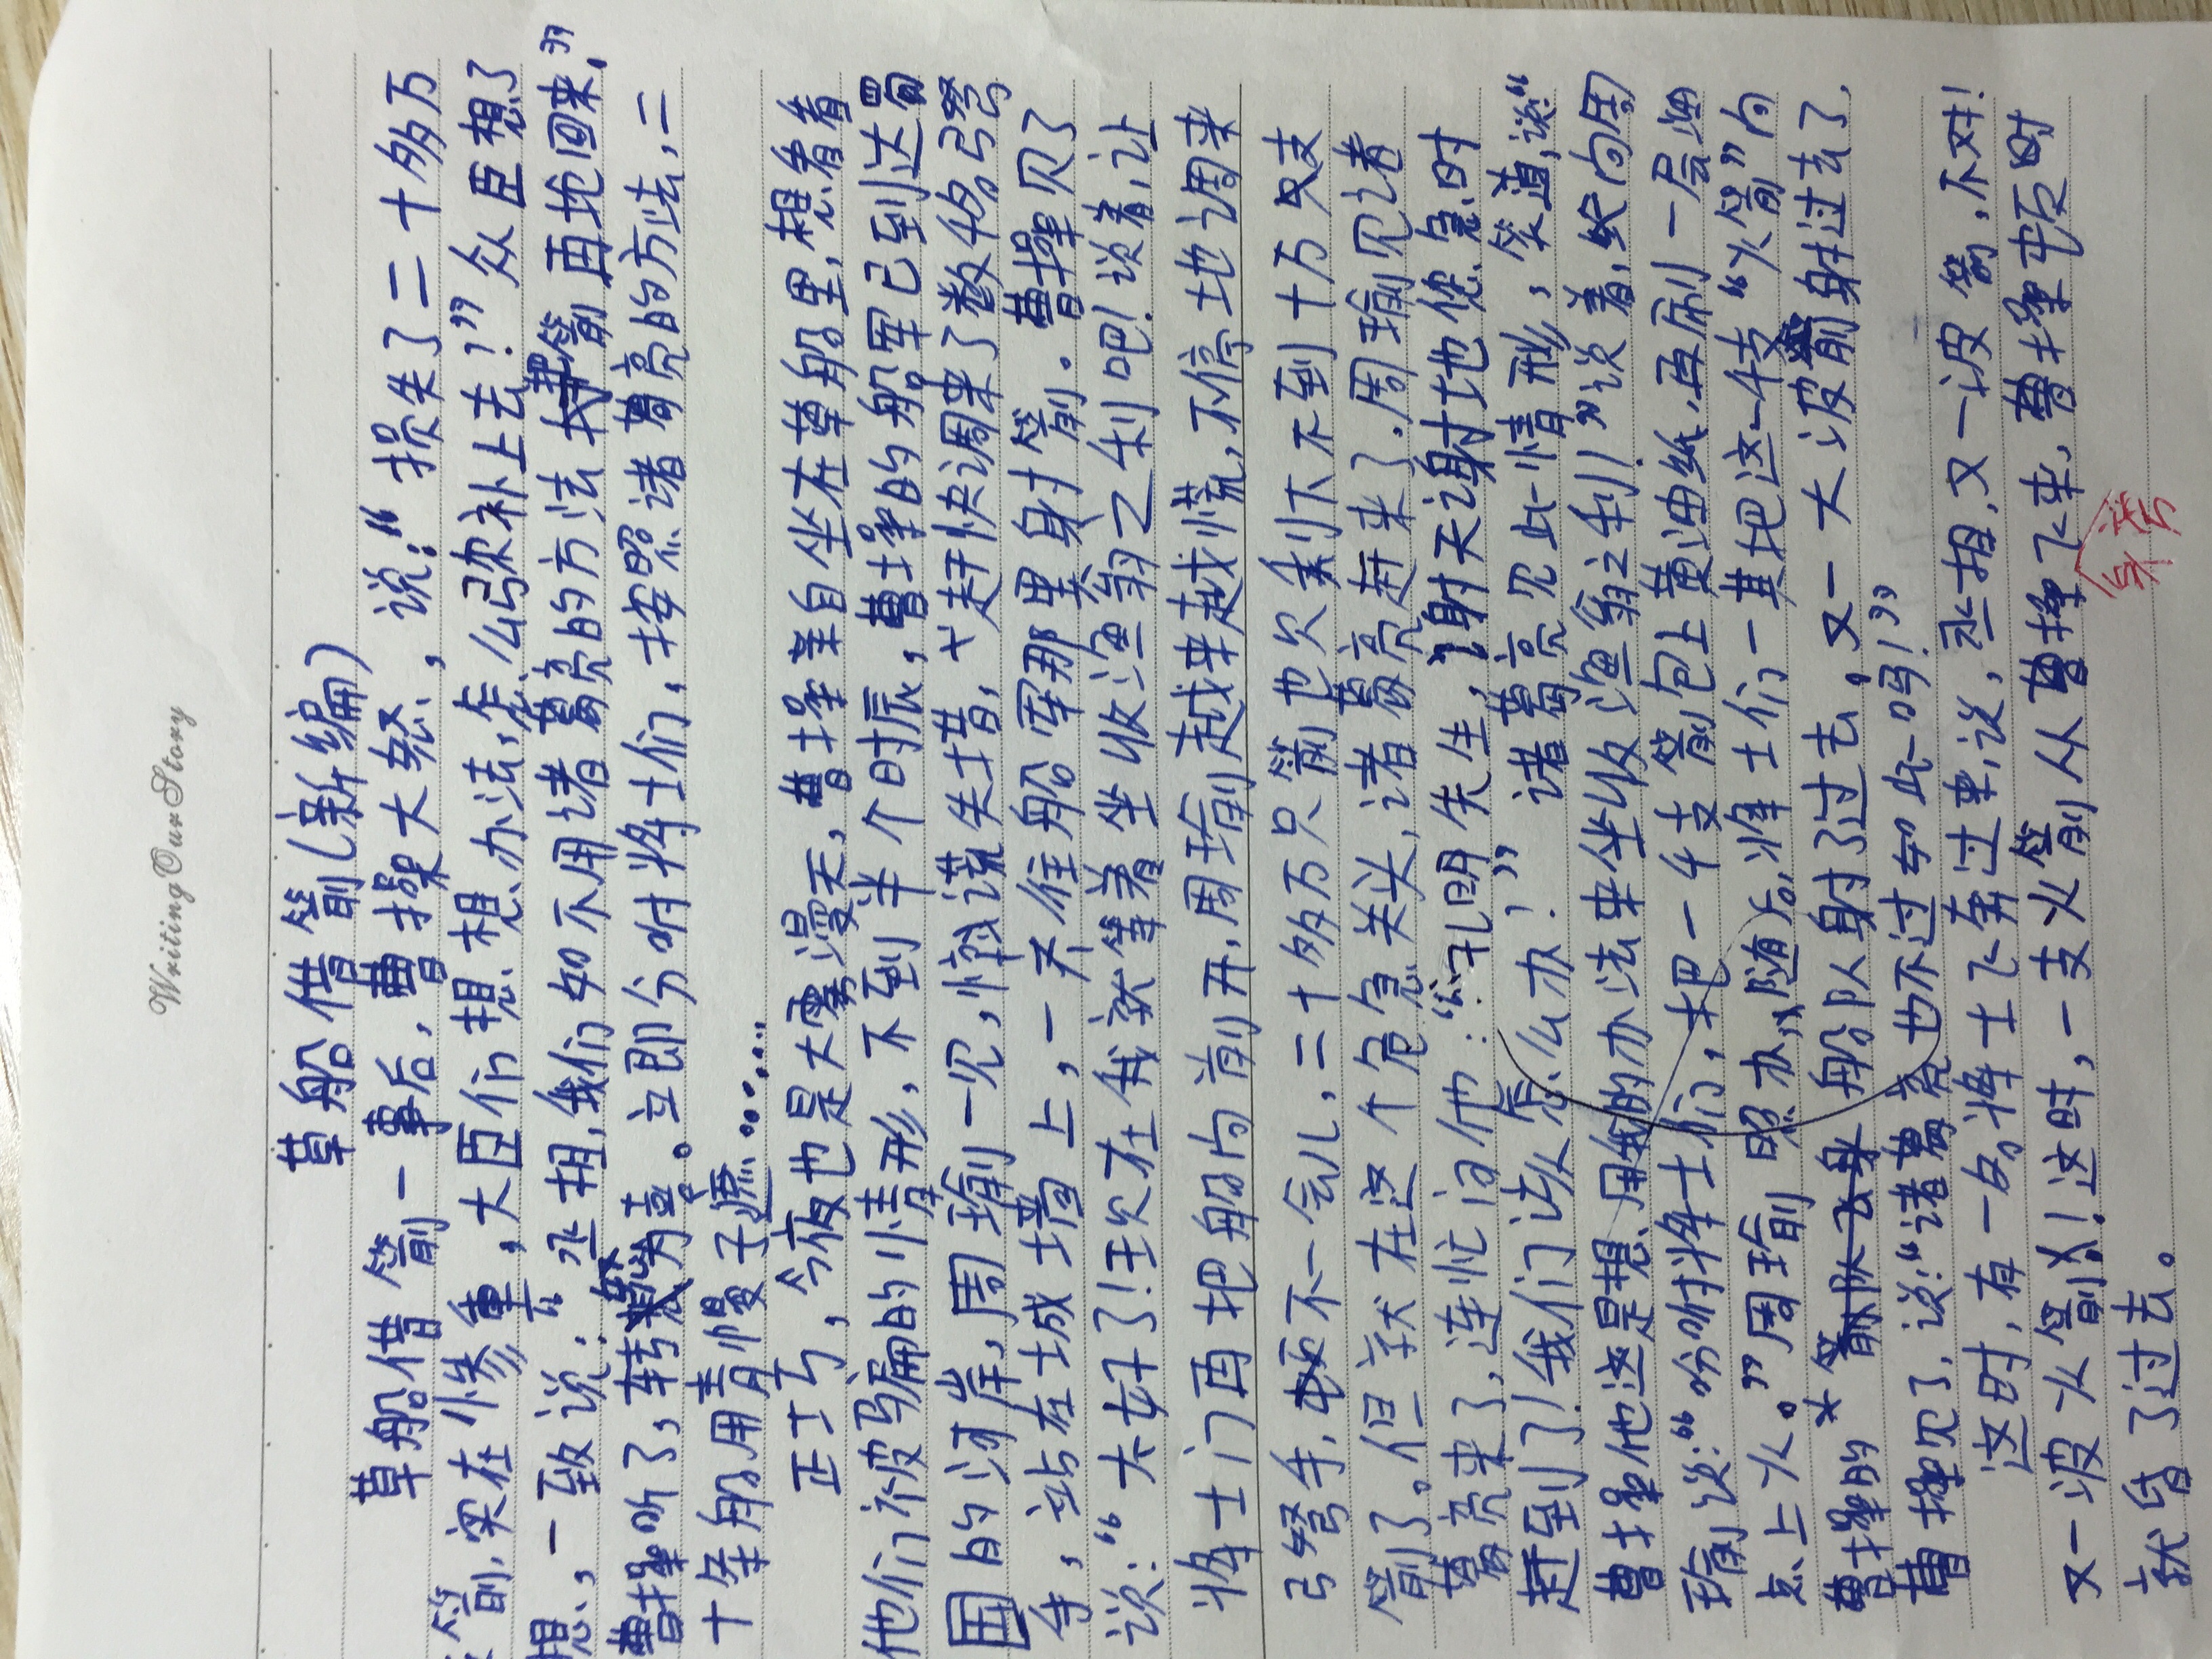 Writing Our Story
草船借箭(新编)
草船借箭一事后,曹操大怒,说:“损失了二十多万
箭,实在惨重,大臣们想想办法,怎么弥补上去!”众臣想了
想,一致说:“丞相,我们如不用诸葛亮的方法把箭再抢回来,”
曹操听了,转怒为喜。立即令吩将士们,按照诸葛亮的方法,二
十条船用青幔子遮…………
正士亏,今夜也是大雾漫天,曹操亲自坐在草船里,想着
他们被骗的情形,不到半个时辰,曹操的船军已到达
国的河岸,周瑜一见,惊慌失措,“赶快调来了数4名弓弩
手,站在城墙上,一齐往船军那里射箭。曹操见了
说:“太好了!现在我就等着坐收渔翁之利吧!说着,让
将士门再把船向前开,周瑜越来越慌,不停地调来
弓弩手,不一会儿,二十多万只箭也只剩下不到十万只支
箭了。但就在这个危急关头,诸葛亮赶来了.周瑜见诸
葛亮来了,连忙问他:“孔明先生,谢天谢地你急时
赶到了!我们该怎么办!”诸葛亮见此情形,笑道,说“
曹操他这是想用我的办法来坐收渔翁之利!”说着,就向周
瑜说:“吩咐将士们,把一4支箭包上黄油纸,再刷一层油
点上火。”周瑜照办,随后,将士们一其把这一4支“火箭”向
曹操的船队射了过去,又一大波箭射过去了,
曹操见了,说:“诸葛亮也不过如此吗!”
这时,有一名将士飞奔过来,说,丞相,又一波箭,不对!
又一波火箭!这时,一支火箭从曹操飞来,曹操屯顿时
就昏了过去。
头